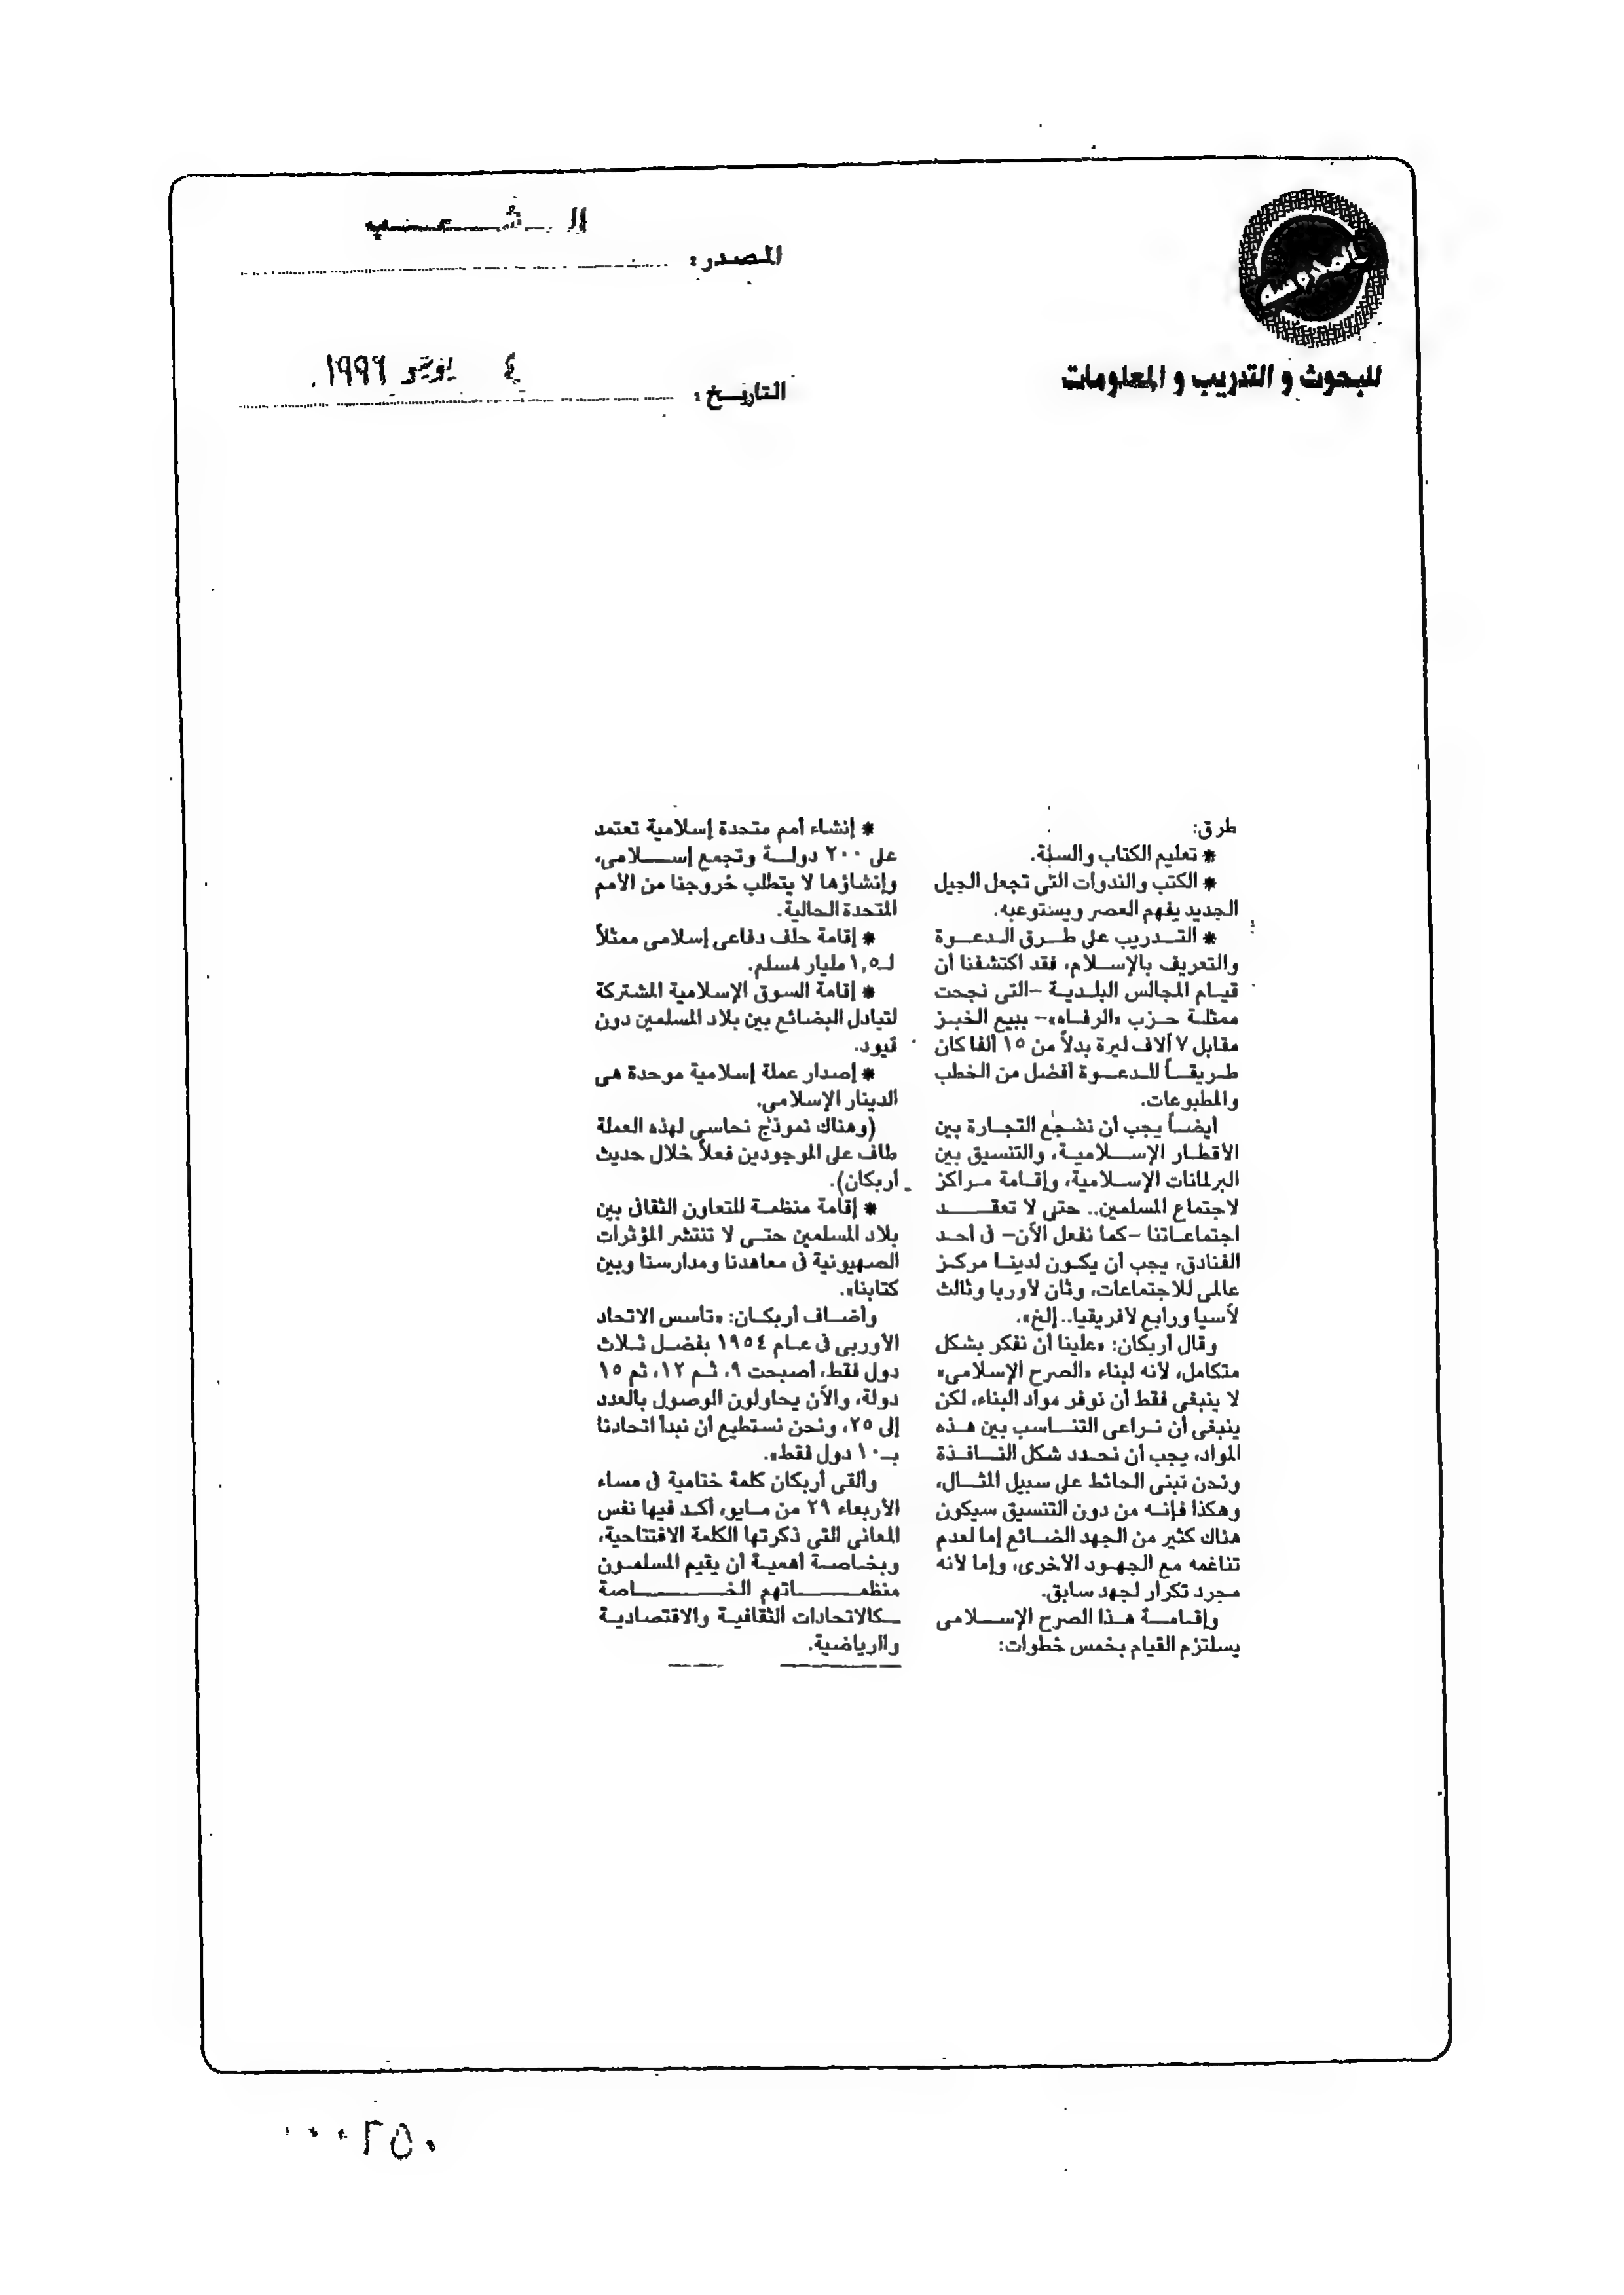 الشعب
المصدر:
المدروسة
للبحوث و التدريب و المعلومات
٤ يونيو ١٩٩٦
التاريخ:
طرق:
* تعليم الكتاب والسنة.
* الكتب والندوات التى تجعل الجيل
الجديد يفهم العصر ويستوعبه.
* التدريب على طرق الدعوة
والتعريف بالإسلام، فقد اكتشفنا أن
قيام المجالس البلدية -التى نجحت
ممثلة حزب «الرفاه»- ببيع الخبز
مقابل ٧ آلاف ليرة بدلاً من ١٥ ألفا كان
طريقاً للدعوة أفضل من الخطب
والمطبوعات.
أيضاً يجب أن نشجع التجارة بين
الأقطار الإسلامية، والتنسيق بين
البرلمانات الإسلامية، وإقامة مراكز
لاجتماع المسلمين.. حتى لا تعقد
اجتماعاتنا -كما نفعل الآن- فى أحد
الفنادق، يجب أن يكون لدينا مركز
عالمى للاجتماعات، وثان لأوربا وثالث
لآسيا ورابع لافريقيا.. إلخ».
وقال أربكان: «علينا أن نفكر بشكل
متكامل، لأنه لبناء «الصرح الإسلامى»
لا ينبغى فقط أن نوفر مواد البناء، لكن
ينبغى أن نراعى التناسب بين هذه
المواد، يجب أن نحدد شكل النافذة
ونحن نبنى الحائط على سبيل المثال،
وهكذا فإنه من دون التنسيق سيكون
هناك كثير من الجهد الضائع إما لعدم
تناغمه مع الجهود الأخرى، وإما لأنه
مجرد تكرار لجهد سابق.
وإقامة هذا الصرح الإسلامى
يسلتزم القيام بخمس خطوات:
* إنشاء أمم متحدة إسلامية تعتمد
على ٢٠٠ دولة وتجمع إسلامى،
وإنشاؤها لا يتطلب خروجنا من الأمم
المتحدة الحالية.
* إقامة حلف دفاعى إسلامى ممثلاً
لـ١,٥ مليار مسلم.
* إقامة السوق الإسلامية المشتركة
لتبادل البضائع بين بلاد المسلمين دون
قيود.
* إصدار عملة إسلامية موحدة هى
الدينار الإسلامى.
(وهناك نموذج نحاسى لهذه العملة
طاف على الموجودين فعلاً خلال حديث
أربكان).
* إقامة منظمة للتعاون الثقافى بين
بلاد المسلمين حتى لا تنتشر المؤثرات
الصهيونية فى معاهدنا ومدارسنا وبين
كتابنا».
وأضاف أربكان: «تأسس الاتحاد
الأوربى فى عام ١٩٥٤ بفضل ثلاث
دول فقط، أصبحت ٩، ثم ١٢، ثم ١٥
دولة، والآن يحاولون الوصول بالعدد
إلى ٢٥، ونحن نستطيع أن نبدأ اتحادنا
بـ١٠ دول فقط».
وألقى أربكان كلمة ختامية فى مساء
الأربعاء ٢٩ من مايو، أكد فيها نفس
المعانى التى ذكرتها الكلمة الافتتاحية،
وبخاصة أهمية أن يقيم المسلمون
منظماتهم الخاصة
كالاتحادات الثقافية والاقتصادية
والرياضية.
٠٠٠٢٥٠